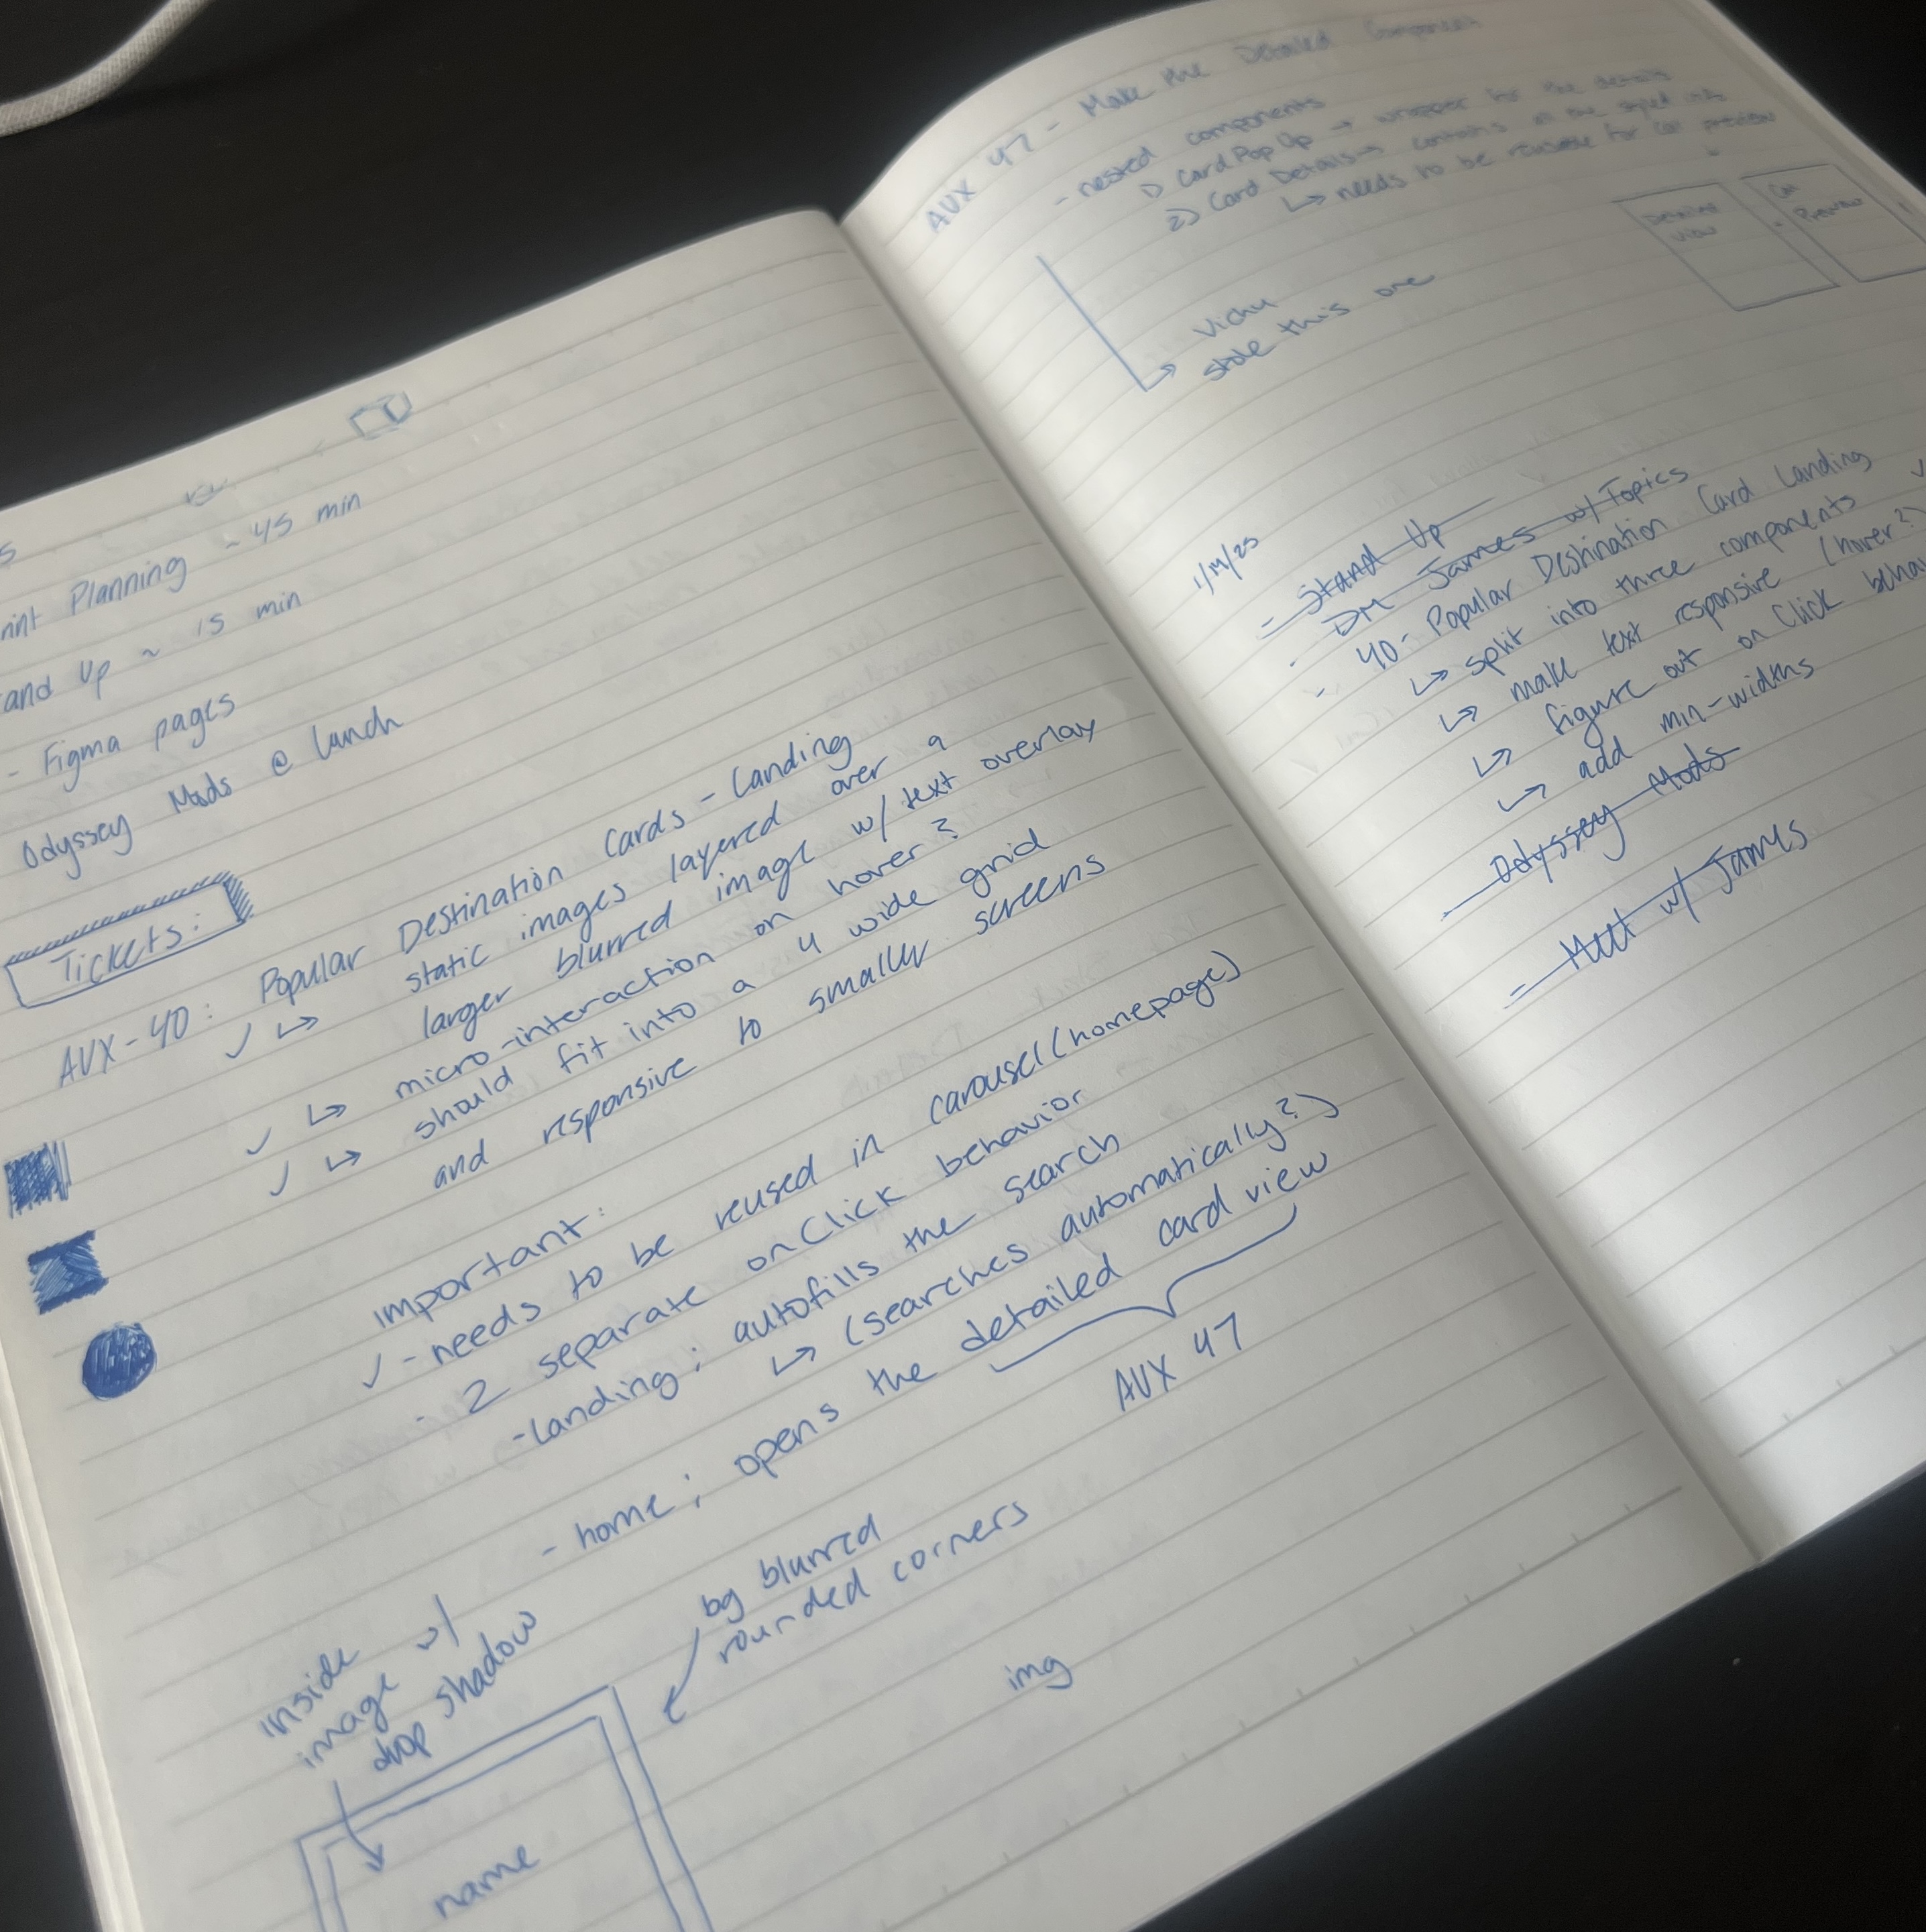 Planning ~ 45 min
and Up ~ 15 min
- Figma pages
Odyssey Mods @ lunch
Tickets:
AUX-40: Popular Destination Cards - Landing
✓ ↳ static images layered over a
larger blurred image w/ text overlay
✓ ↳ micro-interaction on hover?
✓ ↳ should fit into a 4 wide grid
and responsive to smaller screens
important:
✓ - needs to be reused in carousel (homepage)
- 2 separate onClick behavior
- Landing; autofills the search
↳ (searches automatically?)
- home; opens the detailed card view
AUX 47
inside
image w/
drop shadow
bg blurred
rounded corners
img
name
AUX 47 - Make the Detailed Component
- nested components
1) Card Pop Up → wrapper for the details
2) Card Details → contains all the styled info
↳ needs to be reusable for preview
Detailed
View
Preview
↳ Vichu
stole this one
1/14/25
- Stand Up
- DM James w/ Topics
- 40 - Popular Destination Card Landing
↳ split into three components ✓
↳ make text responsive (hover?)
↳ figure out on Click behav
↳ add min-widths
- Odyssey Mods
- Meet w/ James